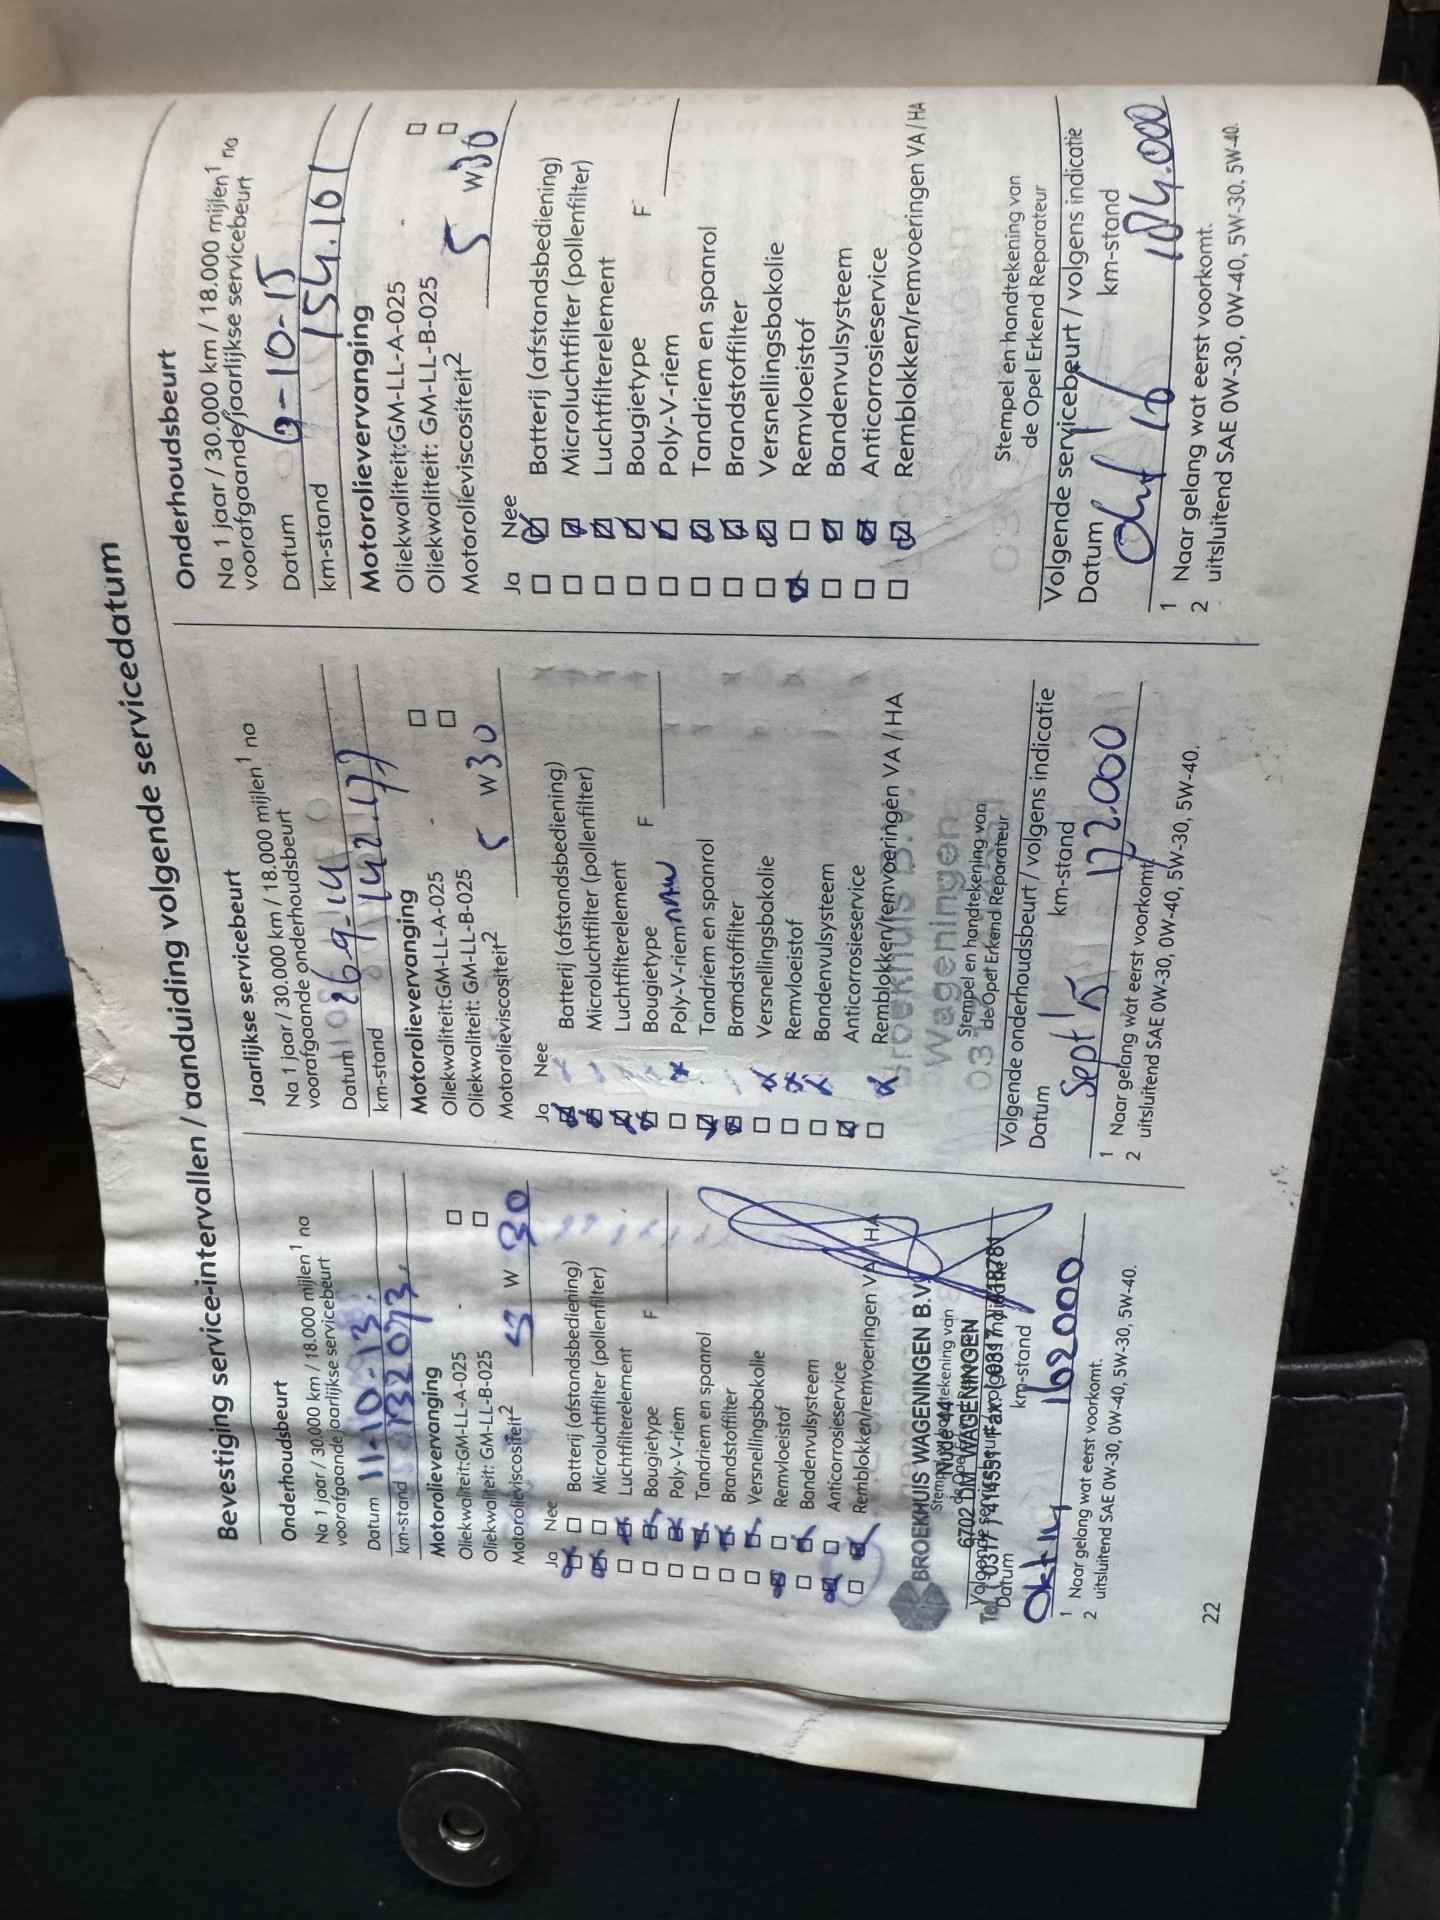 Bevestiging service-intervallen / aanduiding volgende servicedatum
Onderhoudsbeurt
Na 1 jaar / 30.000 km / 18.000 mijlen1 na
voorafgaande jaarlijkse servicebeurt
Datum 11-10-13.
km-stand 132073.
Motorolievervanging
Oliekwaliteit:GM-LL-A-025
Oliekwaliteit: GM-LL-B-025
Motorolieviscositeit2 5 W 30
Ja Nee
Batterij (afstandsbediening)
Microluchtfilter (pollenfilter)
Luchtfilterelement
Bougietype F
Poly-V-riem
Tandriem en spanrol
Brandstoffilter
Versnellingsbakolie
Remvloeistof
Bandenvulsysteem
Anticorrosieservice
Remblokken/remvoeringen VA / HA
BROEKHUIS WAGENINGEN B.V.
Stempel en handtekening van
Nude 44
6702 DM WAGENINGEN
Datum km-stand
Okt 14 162000
1 Naar gelang wat eerst voorkomt.
2 uitsluitend SAE 0W-30, 0W-40, 5W-30, 5W-40.
22
Jaarlijkse servicebeurt
Na 1 jaar / 30.000 km / 18.000 mijlen1 na
voorafgaande onderhoudsbeurt
Datum 26-9-14
km-stand 142.177
Motorolievervanging
Oliekwaliteit:GM-LL-A-025
Oliekwaliteit: GM-LL-B-025
Motorolieviscositeit2 5 W30
Ja Nee
Batterij (afstandsbediening)
Microluchtfilter (pollenfilter)
Luchtfilterelement
Bougietype F
Poly-V-riem
Tandriem en spanrol
Brandstoffilter
Versnellingsbakolie
Remvloeistof
Bandenvulsysteem
Anticorrosieservice
Remblokken/remvoeringen VA / HA
Stempel en handtekening van
de Opel Erkend Reparateur
Volgende onderhoudsbeurt / volgens indicatie
Datum km-stand
Sept 15 172.000
1 Naar gelang wat eerst voorkomt.
2 uitsluitend SAE 0W-30, 0W-40, 5W-30, 5W-40.
Onderhoudsbeurt
Na 1 jaar / 30.000 km / 18.000 mijlen1 na
voorafgaande jaarlijkse servicebeurt
Datum 9-10-15
km-stand 154.101
Motorolievervanging
Oliekwaliteit:GM-LL-A-025
Oliekwaliteit: GM-LL-B-025
Motorolieviscositeit2 5 W30
Ja Nee
Batterij (afstandsbediening)
Microluchtfilter (pollenfilter)
Luchtfilterelement
Bougietype F
Poly-V-riem
Tandriem en spanrol
Brandstoffilter
Versnellingsbakolie
Remvloeistof
Bandenvulsysteem
Anticorrosieservice
Remblokken/remvoeringen VA / HA
Stempel en handtekening van
de Opel Erkend Reparateur
Volgende servicebeurt / volgens indicatie
Datum km-stand
Okt 16 184.000
1 Naar gelang wat eerst voorkomt.
2 uitsluitend SAE 0W-30, 0W-40, 5W-30, 5W-40.